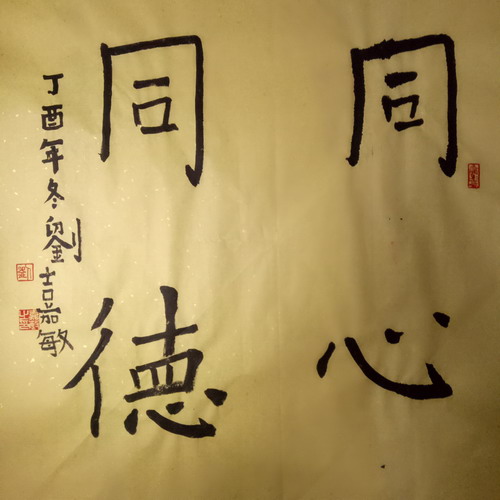 同心
同德
丁酉年冬劉嘉敏